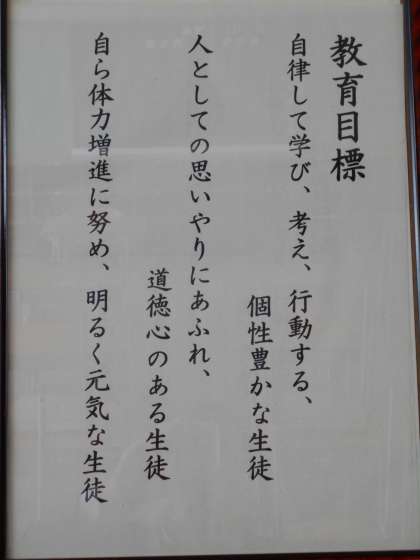 教育目標
自律して学び、考え、行動する、
個性豊かな生徒
人としての思いやりにあふれ、
道徳心のある生徒
自ら体力増進に努め、明るく元気な生徒